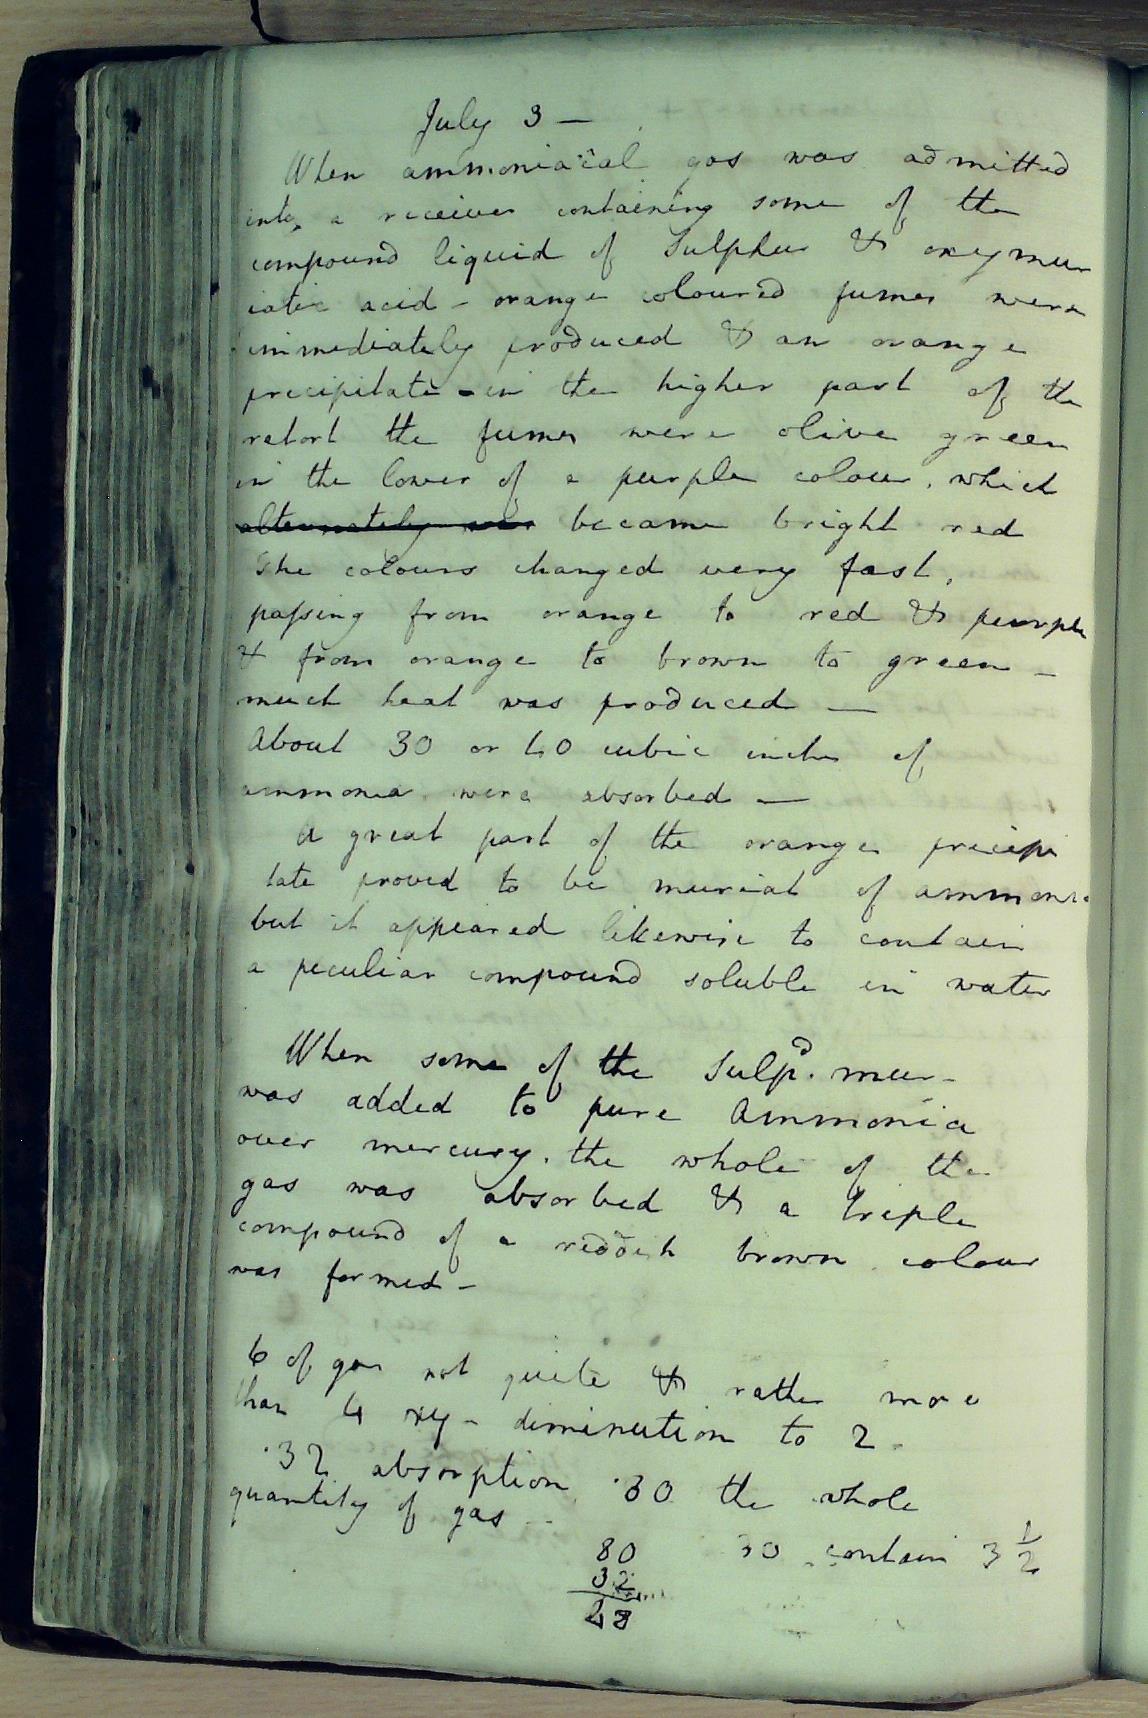 July 3 —
When ammoniacal gas was admitted
into a receiver containing some of the
compound liquid of Sulphur & oxymur
iatic acid - orange coloured fumes were
immediately produced & an orange
precipitate - in the higher part of the
retort the fumes were olive green
in the lower of a purple colour, which
alternately was became bright red
The colours changed very fast,
passing from orange to red & purple
& from orange to brown to green -
much heat was produced —
About 30 or 40 cubic inches of
ammonia were absorbed —
A great part of the orange precipi
tate proved to be muriat of ammonia
but it appeared likewise to contain
a peculiar compound soluble in water
When some of the Sulpd. mur -
was added to pure Ammonia
over mercury. the whole of the
gas was absorbed & a triple
compound of a reddish brown colour
was formed -
6 of gas not quite & rather more
than 4 oxy - diminution to 2 -
.32 absorption .30 the whole
quantity of gas -
80 30 contain 3 1/2
32
48